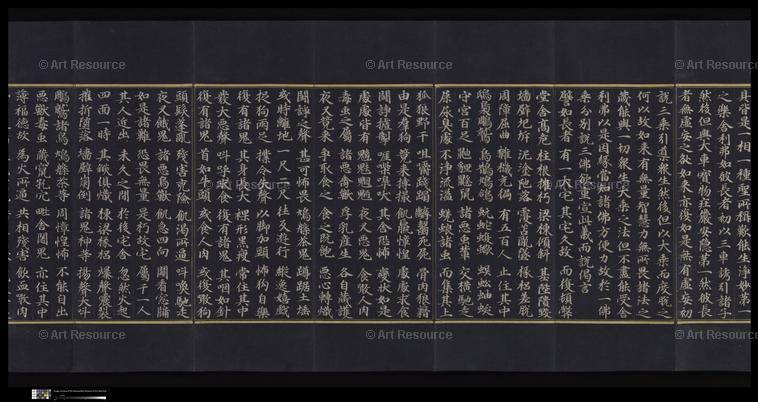 © Art Resource
© Art Resource
© Art Resource
© Art Resource
© Art Resource
© Art Resource
© Art Resource
© Art Resource
© Art Resource
具皆是一相一種聖所稱歎能生淨妙第一
之樂舍利弗如彼長者初以三車誘引諸子
然後但與大車寶物莊嚴安隱第一然彼長
者無虛妄之咎如來亦復如是無有虛妄初
說三乘引導衆生然後但以大乘而度脫之
何以故如來有無量智慧力無所畏諸法之
藏能與一切衆生大乘之法但不盡能受舍
利弗以是因緣當知諸佛方便力故於一佛
乘分別說三佛欲重宣此義而說偈言
譬如長者 有一大宅 其宅久故 而復頓弊
堂舍高危 柱根摧朽 梁棟傾斜 基陛隤毀
墻壁圮坼 泥塗阤落 覆苫亂墜 椽梠差脫
周障屈曲 雜穢充徧 有五百人 止住其中
鴟梟鵰鷲 烏鵲鳩鴿 蚖蛇蝮蠍 蜈蚣蚰蜒
守宮百足 鼬貍鼷鼠 諸惡蟲輩 交橫馳走
屎尿臭處 不淨流溢 蜣蜋諸蟲 而集其上
狐狼野干 咀嚼踐蹋 齩齧死屍 骨肉狼藉
由是群狗 競來搏撮 飢羸慞惶 處處求食
鬪諍摣掣 嘊喍嗥吠 其舍恐怖 變狀如是
處處皆有 魑魅魍魎 夜叉惡鬼 食噉人肉
毒虫之屬 諸惡禽獸 孚乳產生 各自藏護
夜叉競來 爭取食之 食之既飽 惡心轉熾
鬪諍之聲 甚可怖畏 鳩槃荼鬼 蹲踞土埵
或時離地 一尺二尺 往反遊行 縱逸嬉戲
捉狗兩足 撲令失聲 以脚加頸 怖狗自樂
復有諸鬼 其身長大 裸形黑瘦 常住其中
發大惡聲 叫呼求食 復有諸鬼 其咽如針
復有諸鬼 首如牛頭 或食人肉 或復噉狗
頭髮蓬亂 殘害兇險 飢渴所逼 叫喚馳走
夜叉餓鬼 諸惡鳥獸 飢急四向 闚看窓牖
如是諸難 恐畏無量 是朽故宅 屬于一人
其人近出 未久之間 於後宅舍 忽然火起
四面一時 其焰俱熾 棟梁椽柱 爆聲震裂
摧折墮落 墻壁崩倒 諸鬼神等 揚聲大叫
鵰鷲諸鳥 鳩槃荼等 周慞惶怖 不能自出
惡獸毒虫 藏竄孔穴 毗舍闍鬼 亦住其中
薄福德故 為火所逼 共相殘害 飲血噉肉